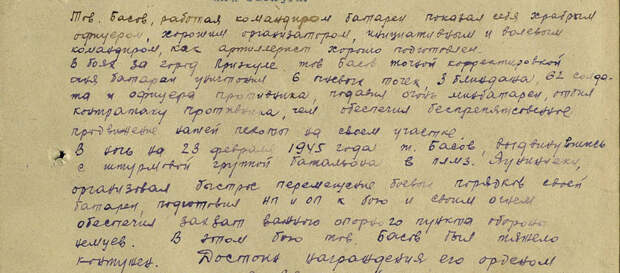 Тов. Басов, работая командиром батареи показал себя храбрым
офицером, хорошим организатором, инициативным и волевым
командиром, как артиллерист хорошо подготовлен.
В боях за город Приекуле тов Басов точной корректировкой
огня батареи уничтожил 6 огневых точек, 3 блиндажа, 62 солда-
та и офицера противника, подавил огонь минбатареи, отбил
контратаку противника, чем обеспечил беспрепятственное
продвижение нашей пехоты на своем участке
В ночь на 23 февраля 1945 года т. Басов, выдвинувшись
с штурмовой группой батальона в
организовал быстрое перемещение боевых порядков своей
батареи, подготовил НП и ОП к бою и своим огнем
обеспечил захват важного опорного пункта обороны
немцев. В этом бою тов. Басов был тяжело
контужен. Достоин награждения его орденом